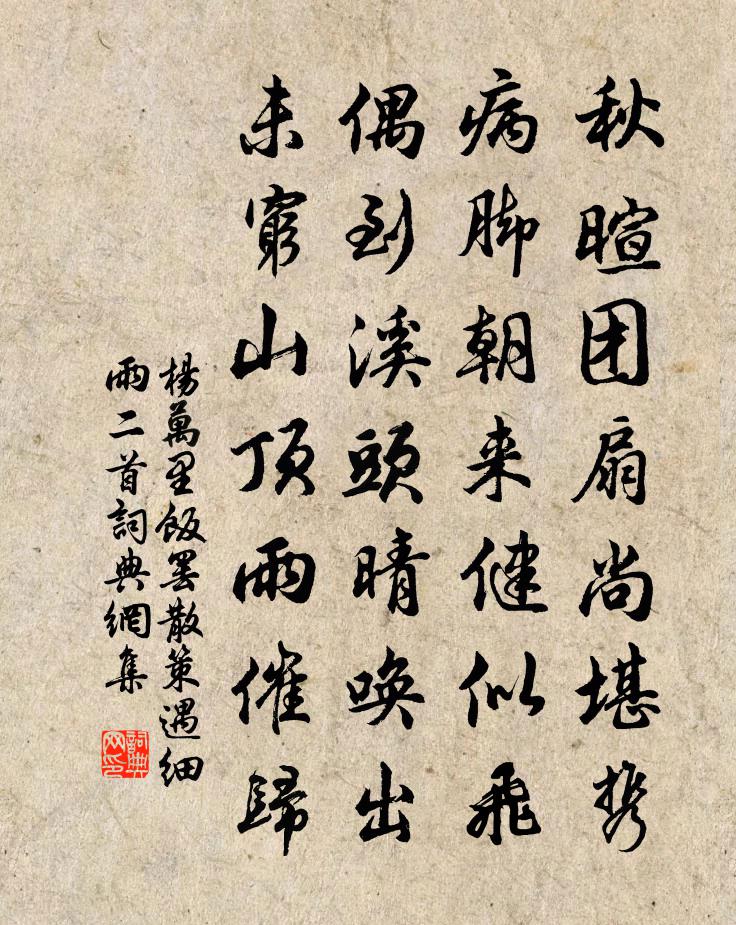 秋暄团扇尚堪携
病脚朝来健似飛
偶到溪頭晴唤出
未窮山顶雨催歸
楊萬里飯罢散策遇细
雨二首詞典網集
詞典網印